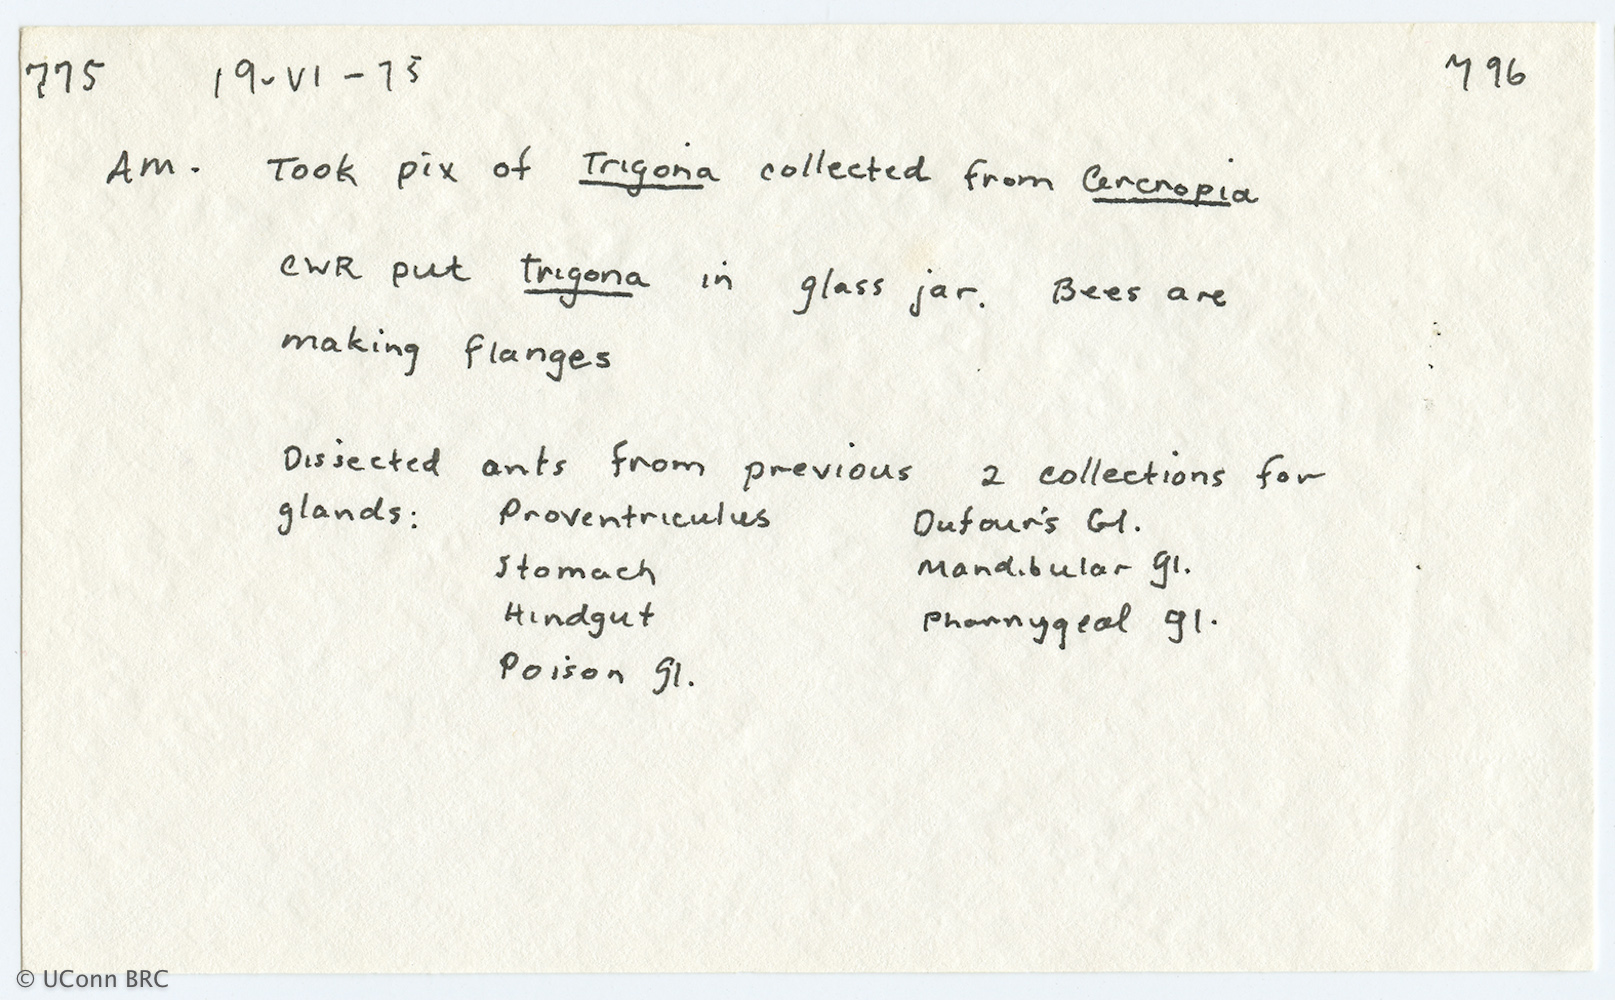 775 19-VI-75 796
Am. Took pix of Trigona collected from Cercropia
CWR put trigona in glass jar. Bees are
making flanges
Dissected ants from previous 2 collections for
glands: Proventriculus Dufour's Gl.
Stomach Mandibular gl.
Hindgut Pharnygeal gl.
Poison gl.
© UConn BRC